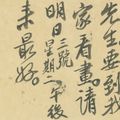 先生要到我
家看畫。請
明日三號星期二午後
来最好。